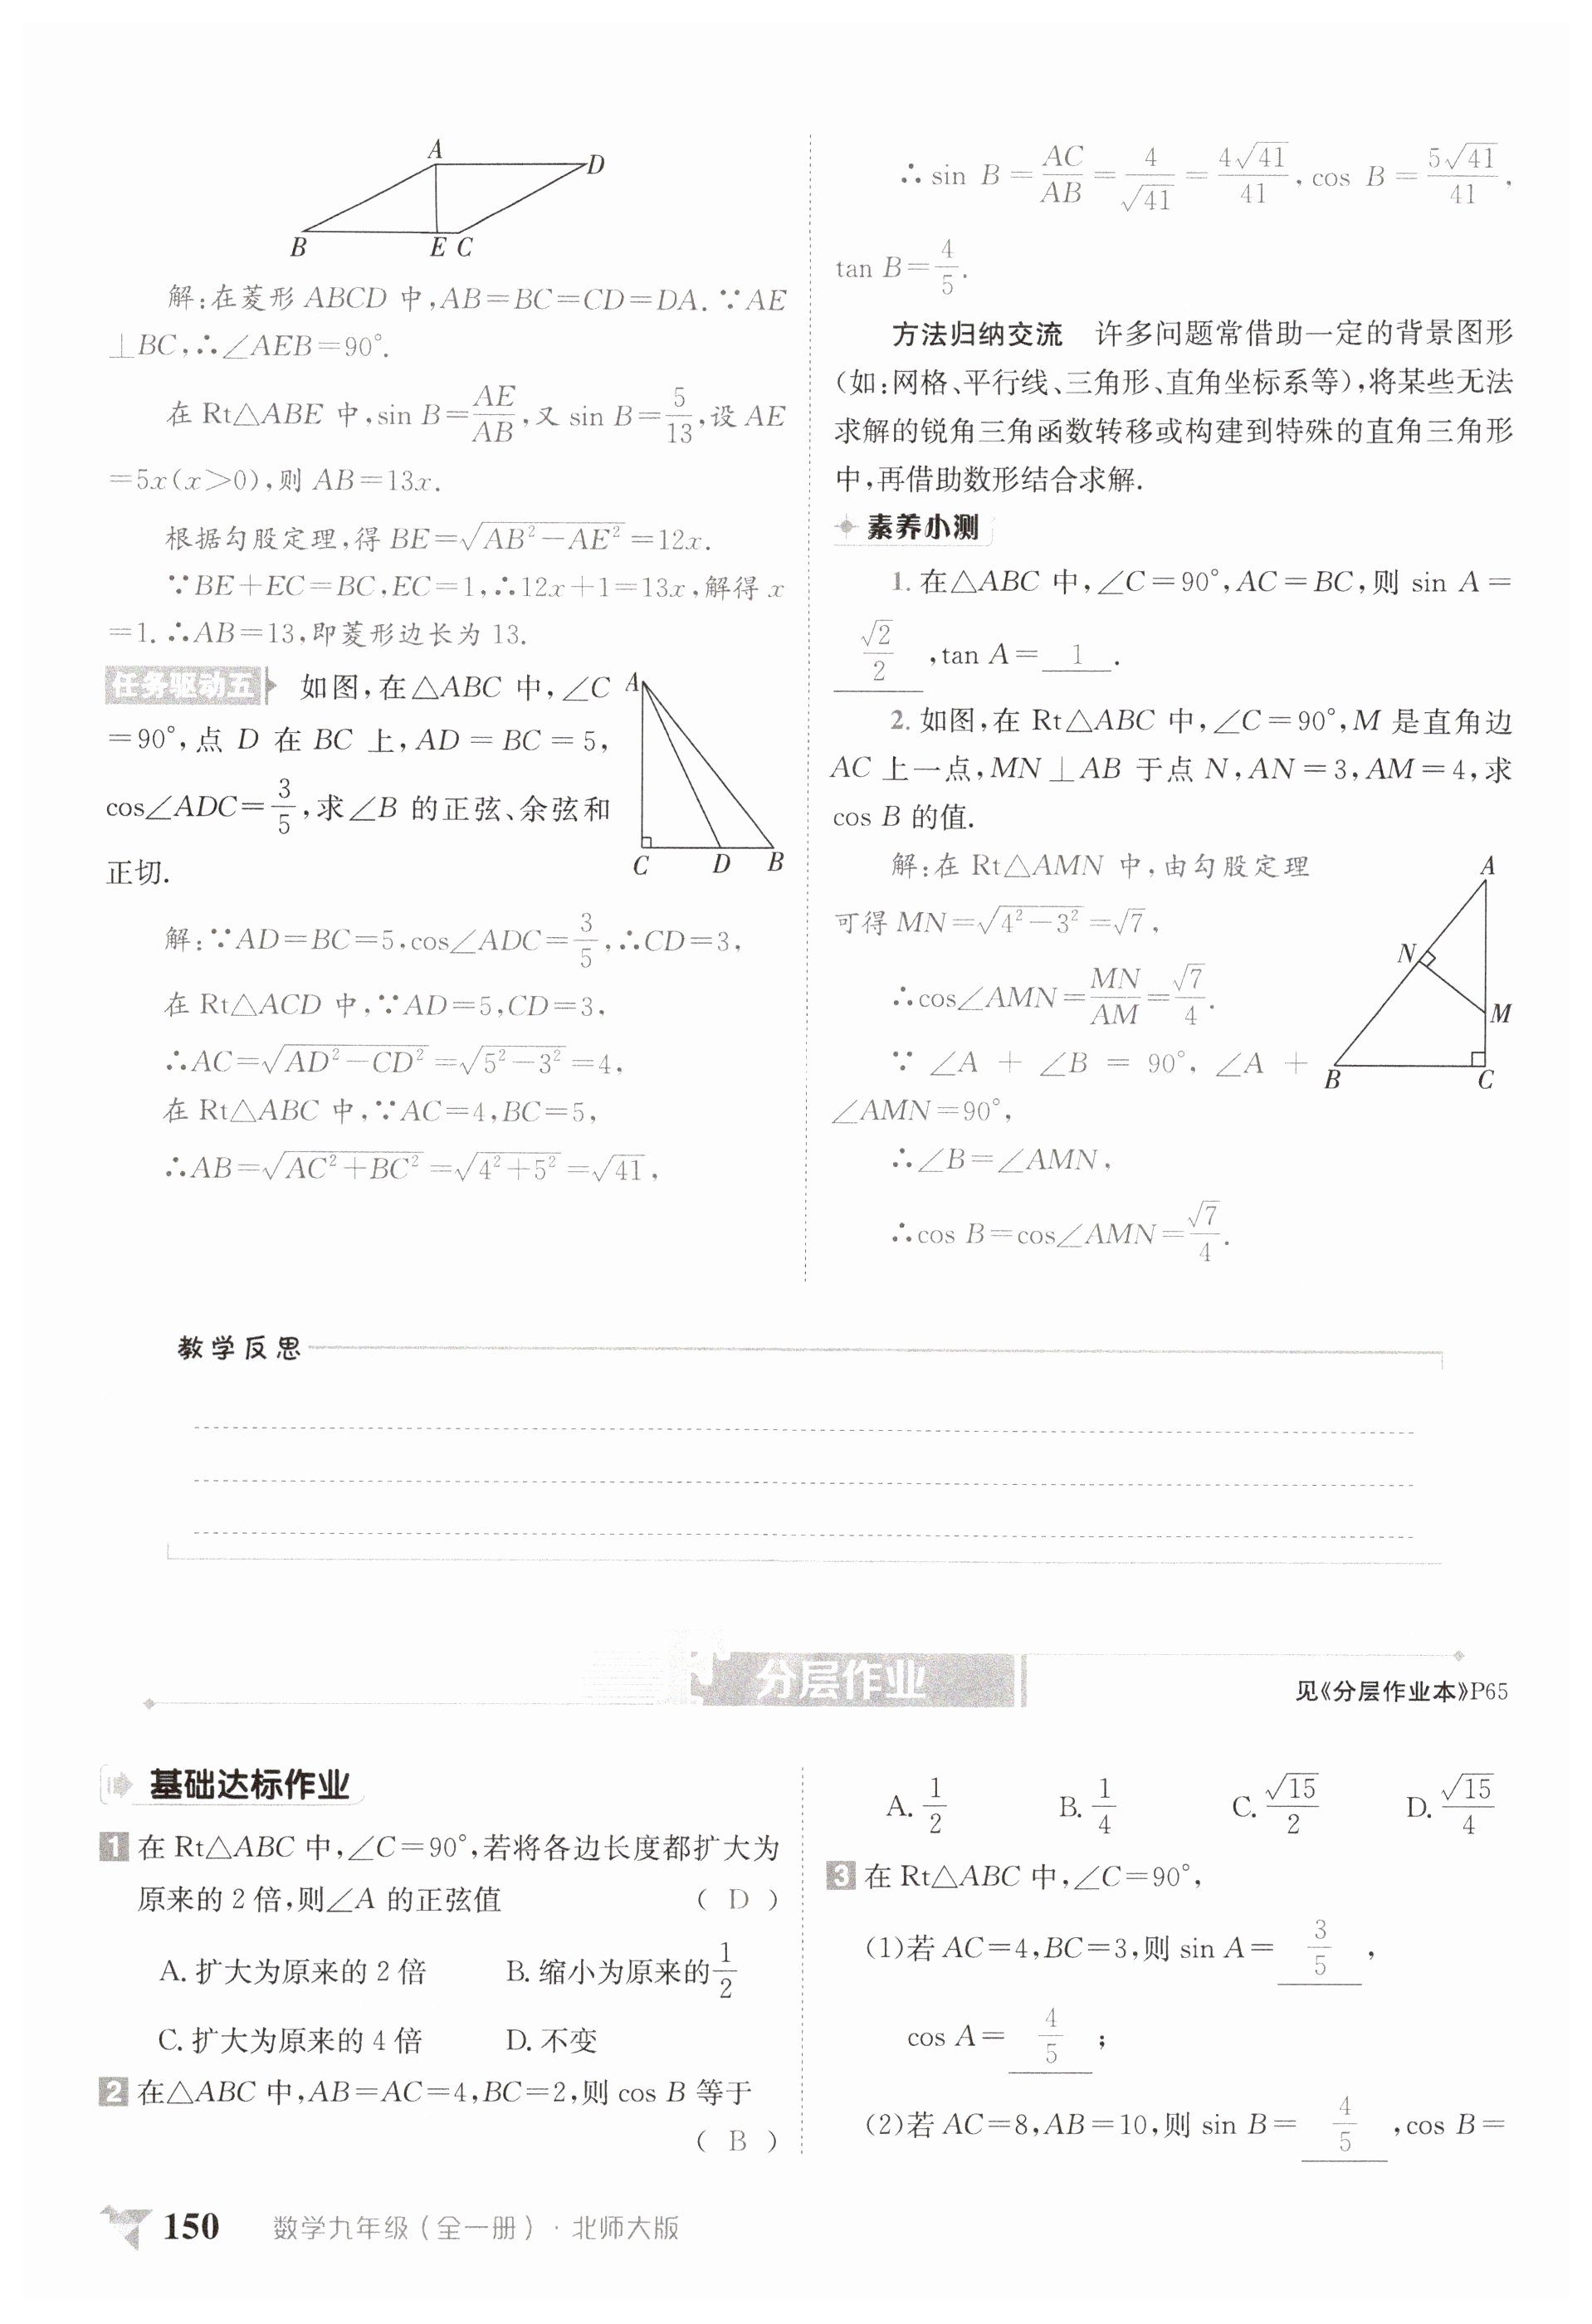 A
D
B
E C
解:在菱形 ABCD 中,AB=BC=CD=DA. ∵AE
⊥BC,∴∠AEB=90°.
在 Rt△ABE 中,sin B=AE/AB,又 sin B=5/13,设 AE
=5x(x>0),则 AB=13x.
根据勾股定理,得 BE=√(AB²-AE²)=12x.
∵BE+EC=BC,EC=1,∴12x+1=13x,解得 x
=1. ∴AB=13,即菱形边长为 13.
任务驱动五 如图,在△ABC 中,∠C
=90°,点 D 在 BC 上,AD=BC=5,
cos∠ADC=3/5,求∠B 的正弦、余弦和
正切.
A
C D B
解:∵AD=BC=5,cos∠ADC=3/5,∴CD=3,
在 Rt△ACD 中,∵AD=5,CD=3,
∴AC=√(AD²-CD²)=√(5²-3²)=4,
在 Rt△ABC 中,∵AC=4,BC=5,
∴AB=√(AC²+BC²)=√(4²+5²)=√41,
∴sin B=AC/AB=4/√41=4√41/41,cos B=5√41/41,
tan B=4/5.
方法归纳交流 许多问题常借助一定的背景图形
(如:网格、平行线、三角形、直角坐标系等),将某些无法
求解的锐角三角函数转移或构建到特殊的直角三角形
中,再借助数形结合求解.
素养小测
1. 在△ABC 中,∠C=90°,AC=BC,则 sin A=
√2/2,tan A=1.
2. 如图,在 Rt△ABC 中,∠C=90°,M 是直角边
AC 上一点,MN⊥AB 于点 N,AN=3,AM=4,求
cos B 的值.
解:在 Rt△AMN 中,由勾股定理
可得 MN=√(4²-3²)=√7,
∴cos∠AMN=MN/AM=√7/4.
∵∠A+∠B=90°,∠A+
∠AMN=90°,
∴∠B=∠AMN,
∴cos B=cos∠AMN=√7/4.
A
N
M
B C
教学反思
分层作业
见《分层作业本》P65
基础达标作业
1 在 Rt△ABC 中,∠C=90°,若将各边长度都扩大为
原来的 2 倍,则∠A 的正弦值 ( D )
A. 扩大为原来的 2 倍 B. 缩小为原来的1/2
C. 扩大为原来的 4 倍 D. 不变
2 在△ABC 中,AB=AC=4,BC=2,则 cos B 等于
( B )
A. 1/2 B. 1/4 C. √15/2 D. √15/4
3 在 Rt△ABC 中,∠C=90°,
(1)若 AC=4,BC=3,则 sin A=3/5,
cos A=4/5;
(2)若 AC=8,AB=10,则 sin B=4/5,cos B=
150 数学九年级(全一册)·北师大版